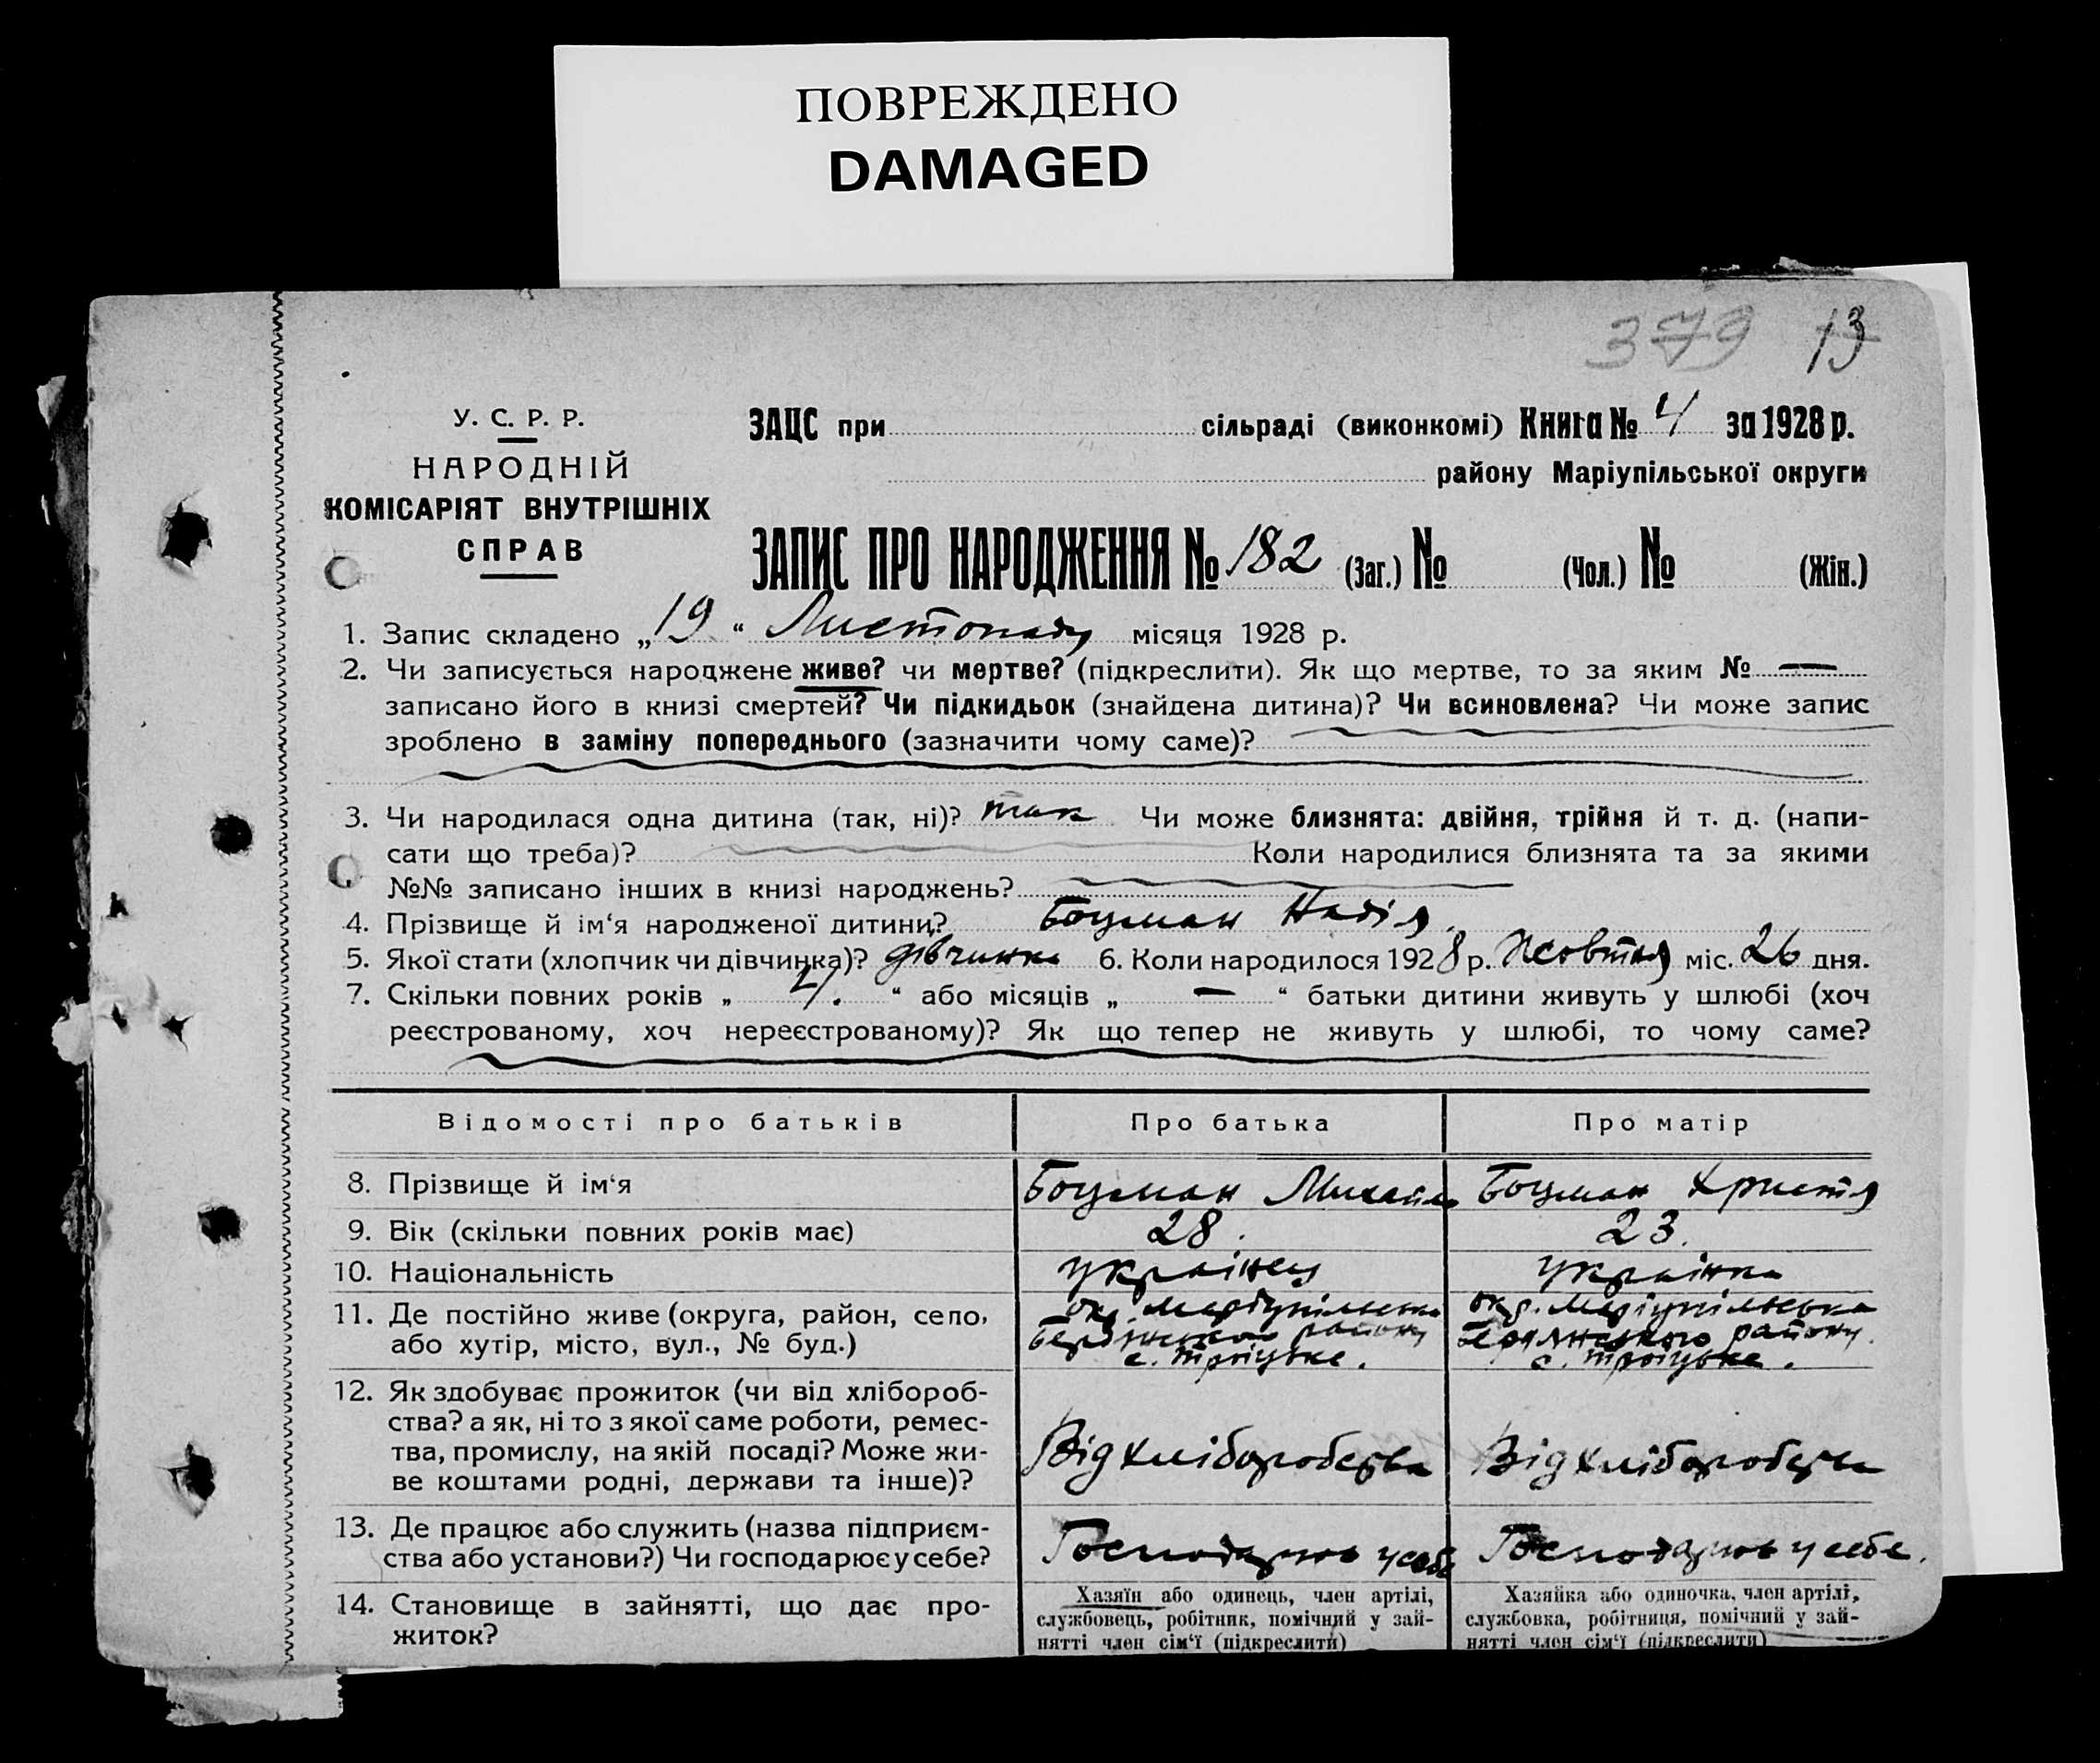 ПОВРЕЖДЕНО
DAMAGED
379 13
У. С. Р. Р.
НАРОДНІЙ
КОМІСАРІЯТ ВНУТРІШНІХ
СПРАВ
ЗАЦС при сільраді (виконкомі) Книга № 4 за 1928 р.
району Маріупільської округи
ЗАПИС ПРО НАРОДЖЕННЯ № 182 (Заг.) № (Чол.) № (Жін.)
1. Запис складено „19“ Листопаду місяця 1928 р.
2. Чи записується народжене живе? чи мертве? (підкреслити). Як що мертве, то за яким № —
записано його в книзі смертей? Чи підкидьок (знайдена дитина)? Чи всиновлена? Чи може запис
зроблено в заміну попереднього (зазначити чому саме)?
3. Чи народилася одна дитина (так, ні)? так Чи може близнята: двійня, трійня й т. д. (напи-
сати що треба)? Коли народилися близнята та за якими
№№ записано інших в книзі народжень?
4. Прізвище й ім‘я народженої дитини? Боцман Надія.
5. Якої стати (хлопчик чи дівчинка)? дівчинка 6. Коли народилося 1928 р. Жовтня міс. 26 дня.
7. Скільки повних років „ “ або місяців „ — “ батьки дитини живуть у шлюбі (хоч
реєстрованому, хоч нереєстрованому)? Як що тепер не живуть у шлюбі, то чому саме?
Відомості про батьків Про батька Про матір
8. Прізвище й ім‘я Боцман Михайло Боцман Христя
9. Вік (скільки повних років має) 28. 23.
10. Національність українец українка
11. Де постійно живе (округа, район, село, окр. Маріупільська окр. Маріупільська
або хутір, місто, вул., № буд.) Бердянського району Бердянського району.
с. Троіцьке. с. Троіцьке.
12. Як здобуває прожиток (чи від хлібороб-
ства? а як, ні то з якої саме роботи, ремес-
тва, промислу, на якій посаді? Може жи- Від хліборобства Від хліборобства
ве коштами родні, держави та інше)?
13. Де працює або служить (назва підприєм-
ства або установи?) Чи господарює у себе? Господарює у себе Господарює у себе.
14. Становище в зайнятті, що дає про-
житок?
Хазяїн або одинець, член артілі,
службовець, робітник, помічний у зай-
нятті член сім‘ї (підкреслити)
Хазяйка або одиночка, член артілі,
службовка, робітниця, помічний у зай-
нятті член сім‘ї (підкреслити)